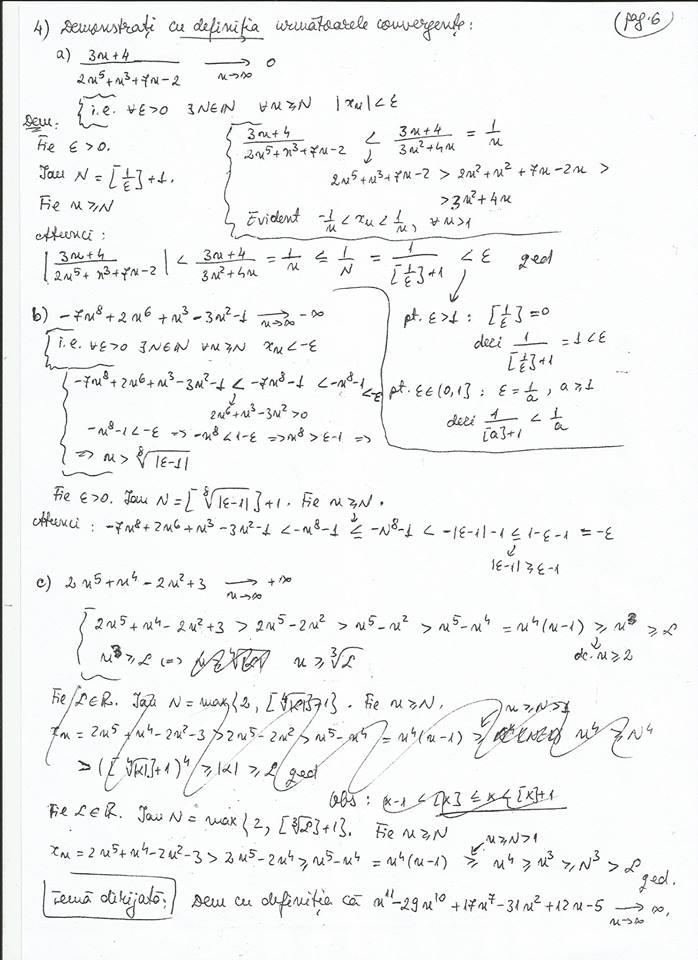 4) Demonstrați cu definiția următoarele convergențe: (pag. 6)
a) (3n+4)/(2n⁵+n³+7n-2) → 0 (n→∞)
{i.e. ∀ε>0 ∃N∈ℕ ∀n≥N |xₙ|<ε
Dem:
Fie ε>0.
Iau N=[1/ε]+1.
Fie n≥N
{(3n+4)/(2n⁵+n³+7n-2) < (3n+4)/(3n²+4n) = 1/n
2n⁵+n³+7n-2 > 2n²+n²+7n-2n >
>3n²+4n
Evident -1/n < xₙ < 1/n, ∀n>1
Atunci:
|(3n+4)/(2n⁵+n³+7n-2)| < (3n+4)/(3n²+4n) = 1/n ≤ 1/N = 1/([1/ε]+1) < ε qed
pt. ε>1: [1/ε]=0
deci 1/([1/ε]+1) = 1<ε
pt. ε∈(0,1]: ε=1/a, a≥1
deci 1/([a]+1) < 1/a
b) -7n⁸+2n⁶+n³-3n²-1 → -∞ (n→∞)
{i.e. ∀ε>0 ∃N∈ℕ ∀n≥N xₙ<-ε
{-7n⁸+2n⁶+n³-3n²-1 < -7n⁸-1 < -n⁸-1 <-ε
2n⁶+n³-3n²>0
-n⁸-1<-ε => -n⁸<1-ε => n⁸>ε-1 =>
=> n > ⁸√|ε-1|
Fie ε>0. Iau N=[⁸√|ε-1|]+1. Fie n≥N.
Atunci: -7n⁸+2n⁶+n³-3n²-1 < -n⁸-1 ≤ -N⁸-1 < -|ε-1|-1 ≤ 1-ε-1 = -ε
|ε-1|≥ε-1
c) 2n⁵+n⁴-2n²+3 → +∞ (n→∞)
{2n⁵+n⁴-2n²+3 > 2n⁵-2n² > n⁵-n² > n⁵-n⁴ = n⁴(n-1) ≥ n³ ≥ L
dc. n≥2
n³≥L <=> n≥∛L
Fie L∈ℝ. Iau N=max{2, [⁴√|L|]+1}. Fie n≥N.
n≥N>1
xₙ=2n⁵+n⁴-2n²-3>2n⁵-2n²>n⁵-n⁴=n⁴(n-1) ≥ n⁴≥N⁴
>([⁴√|L|]+1)⁴≥|L|≥L qed
Obs: x-1<[x]≤x<[x]+1
Fie L∈ℝ. Iau N=max{2, [∛L]+1}. Fie n≥N
n≥N>1
xₙ=2n⁵+n⁴-2n²-3>2n⁵-2n⁴≥n⁵-n⁴=n⁴(n-1) ≥ n⁴≥n³≥N³>L qed.
Temă dirijată: Dem cu definiția că n¹¹-29n¹⁰+17n⁷-31n²+12n-5 → ∞. (n→∞)